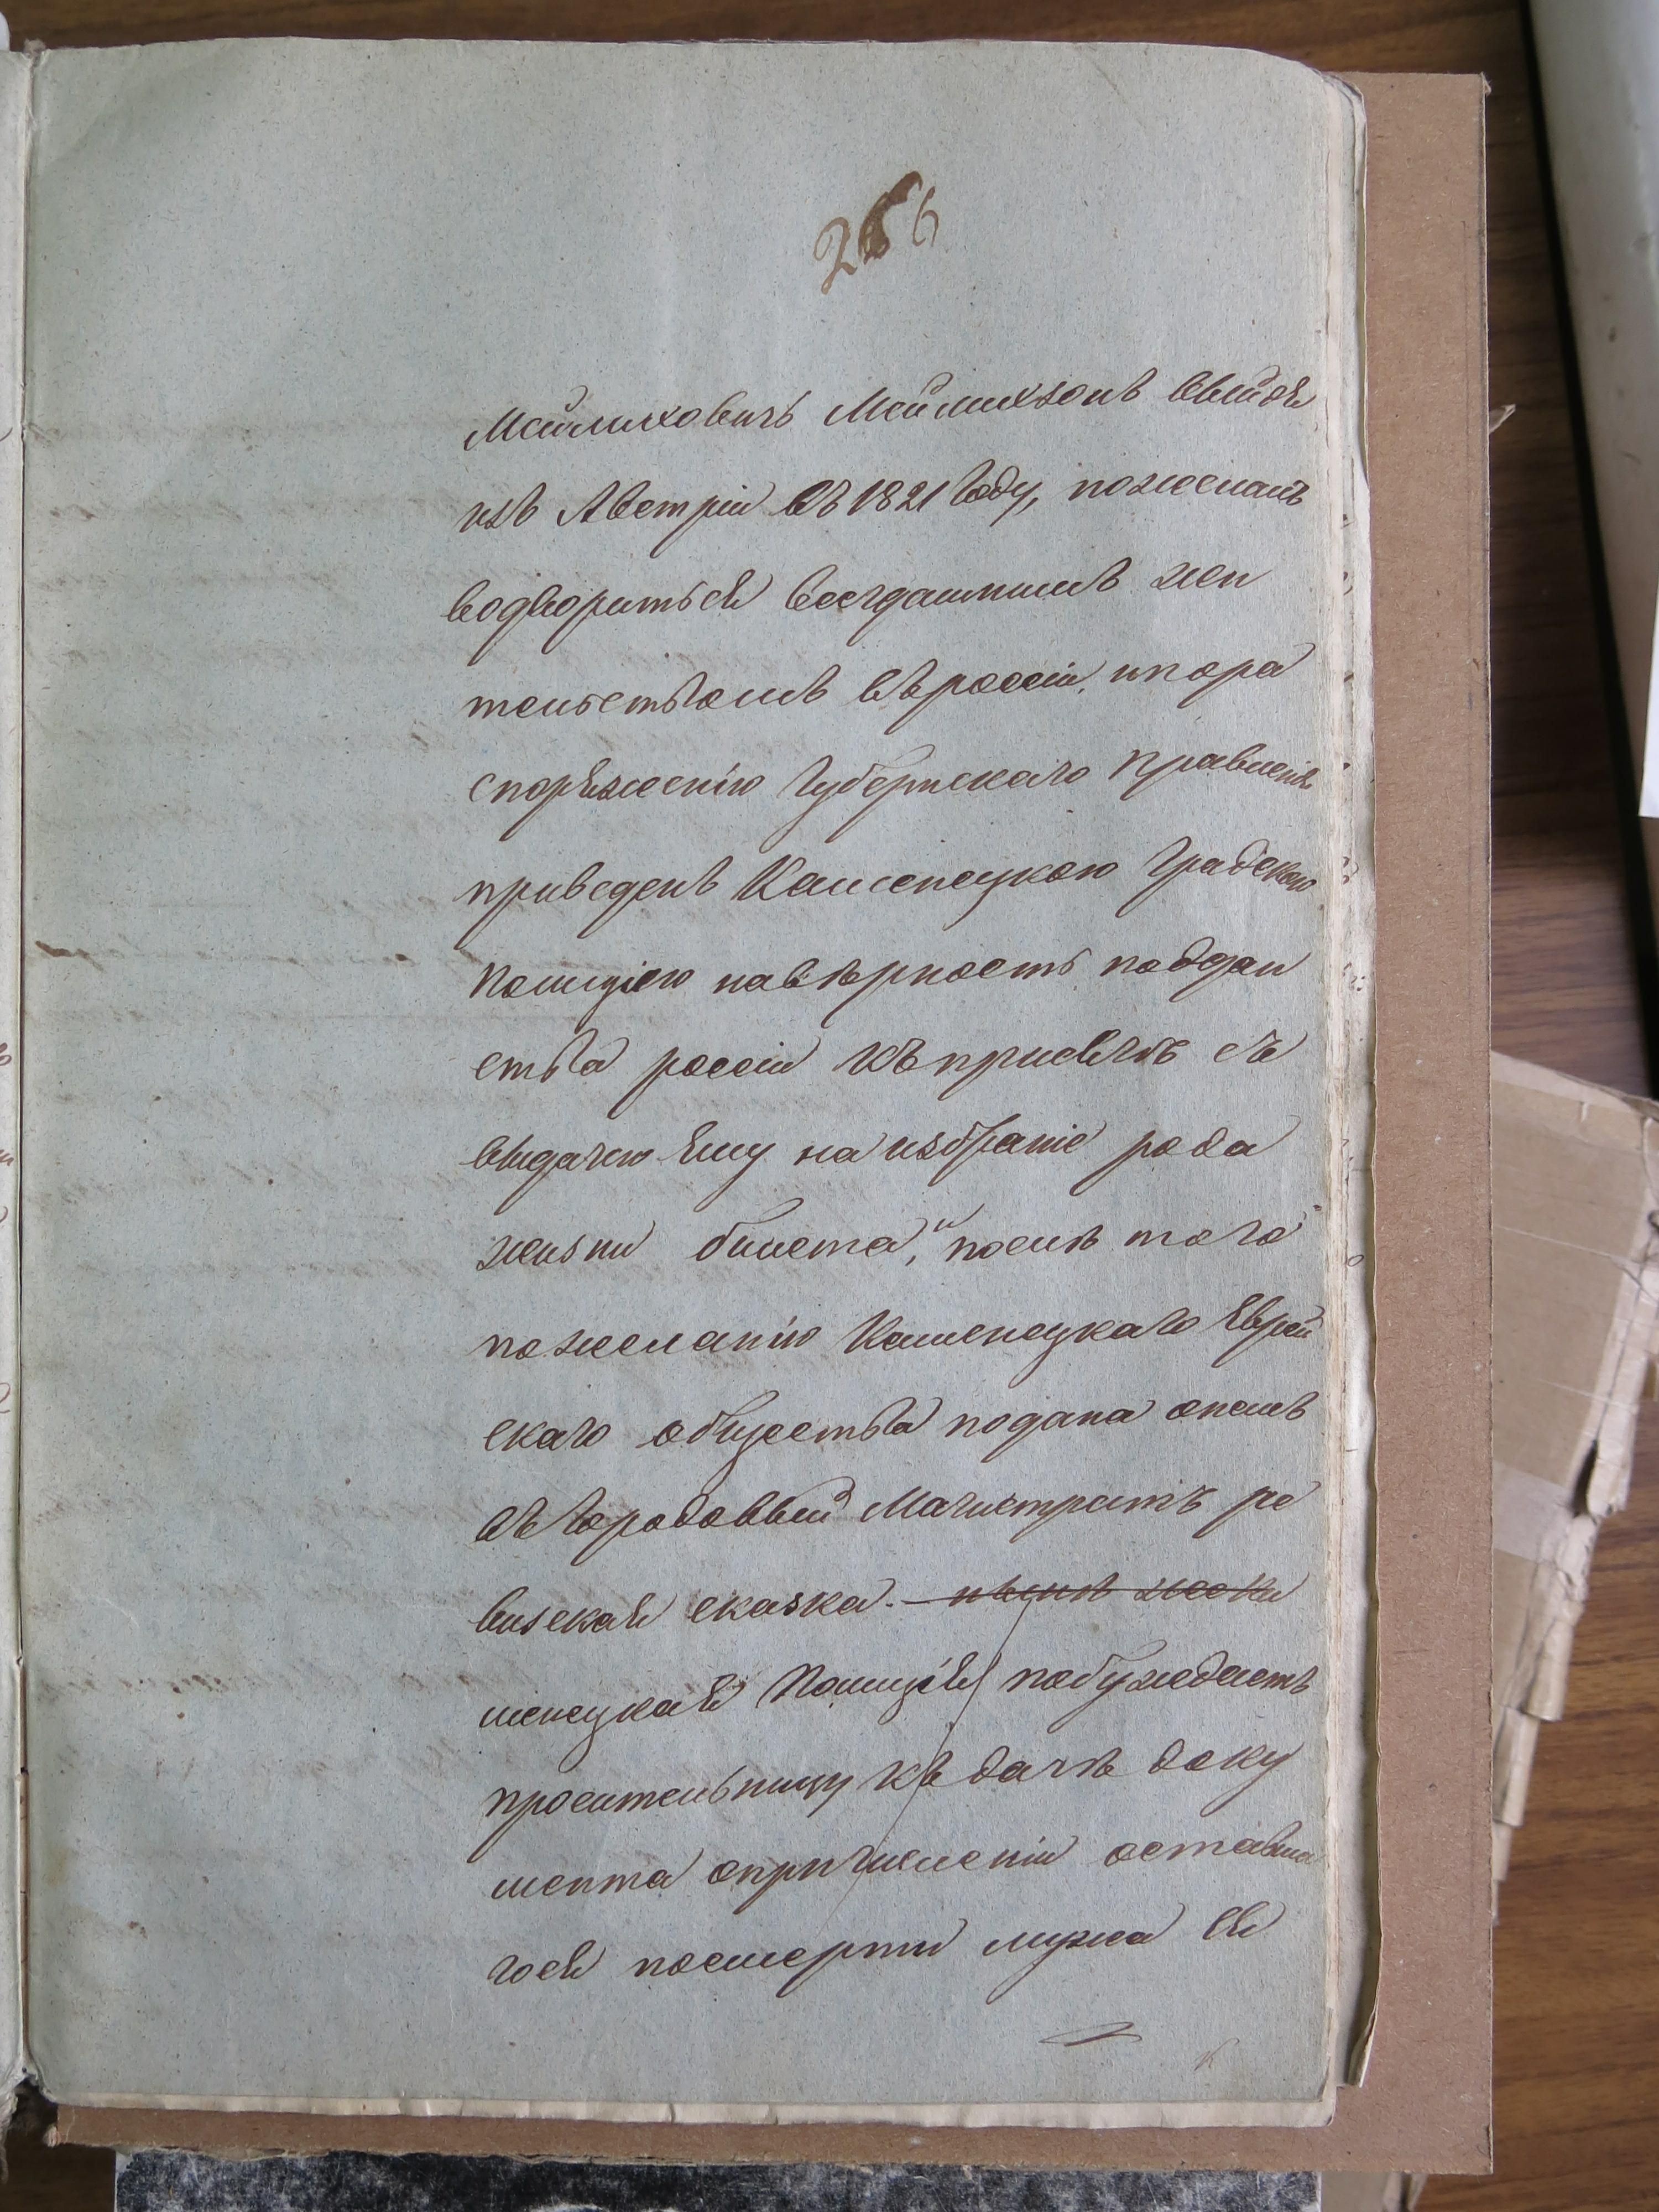 266
Мейлиховичъ Мейлихзонъ выйдя
изъ Австріи въ 1821 году, пожелалъ
водворитьея всегдашнимъ жи
тельствомъ въ россіи, и по ра
споряженію Губернскаго Правленія
приведенъ Каменецкою Градскою
Полиціею на вѣрность поддан
ства россіи къ присягѣ съ
выдачею ему на избраніе рода
жизни билета, и послѣ того
по желанію Каменецкаго Еврей
скаго общества подана о немъ
въ Городовый Магистратъ ре
визская сказка. нынѣ же Ка
менецкая Полиція побуждаетъ
просительницу къ дачѣ доку
мента о причисленіи оставша
гося по смерти мужа ея